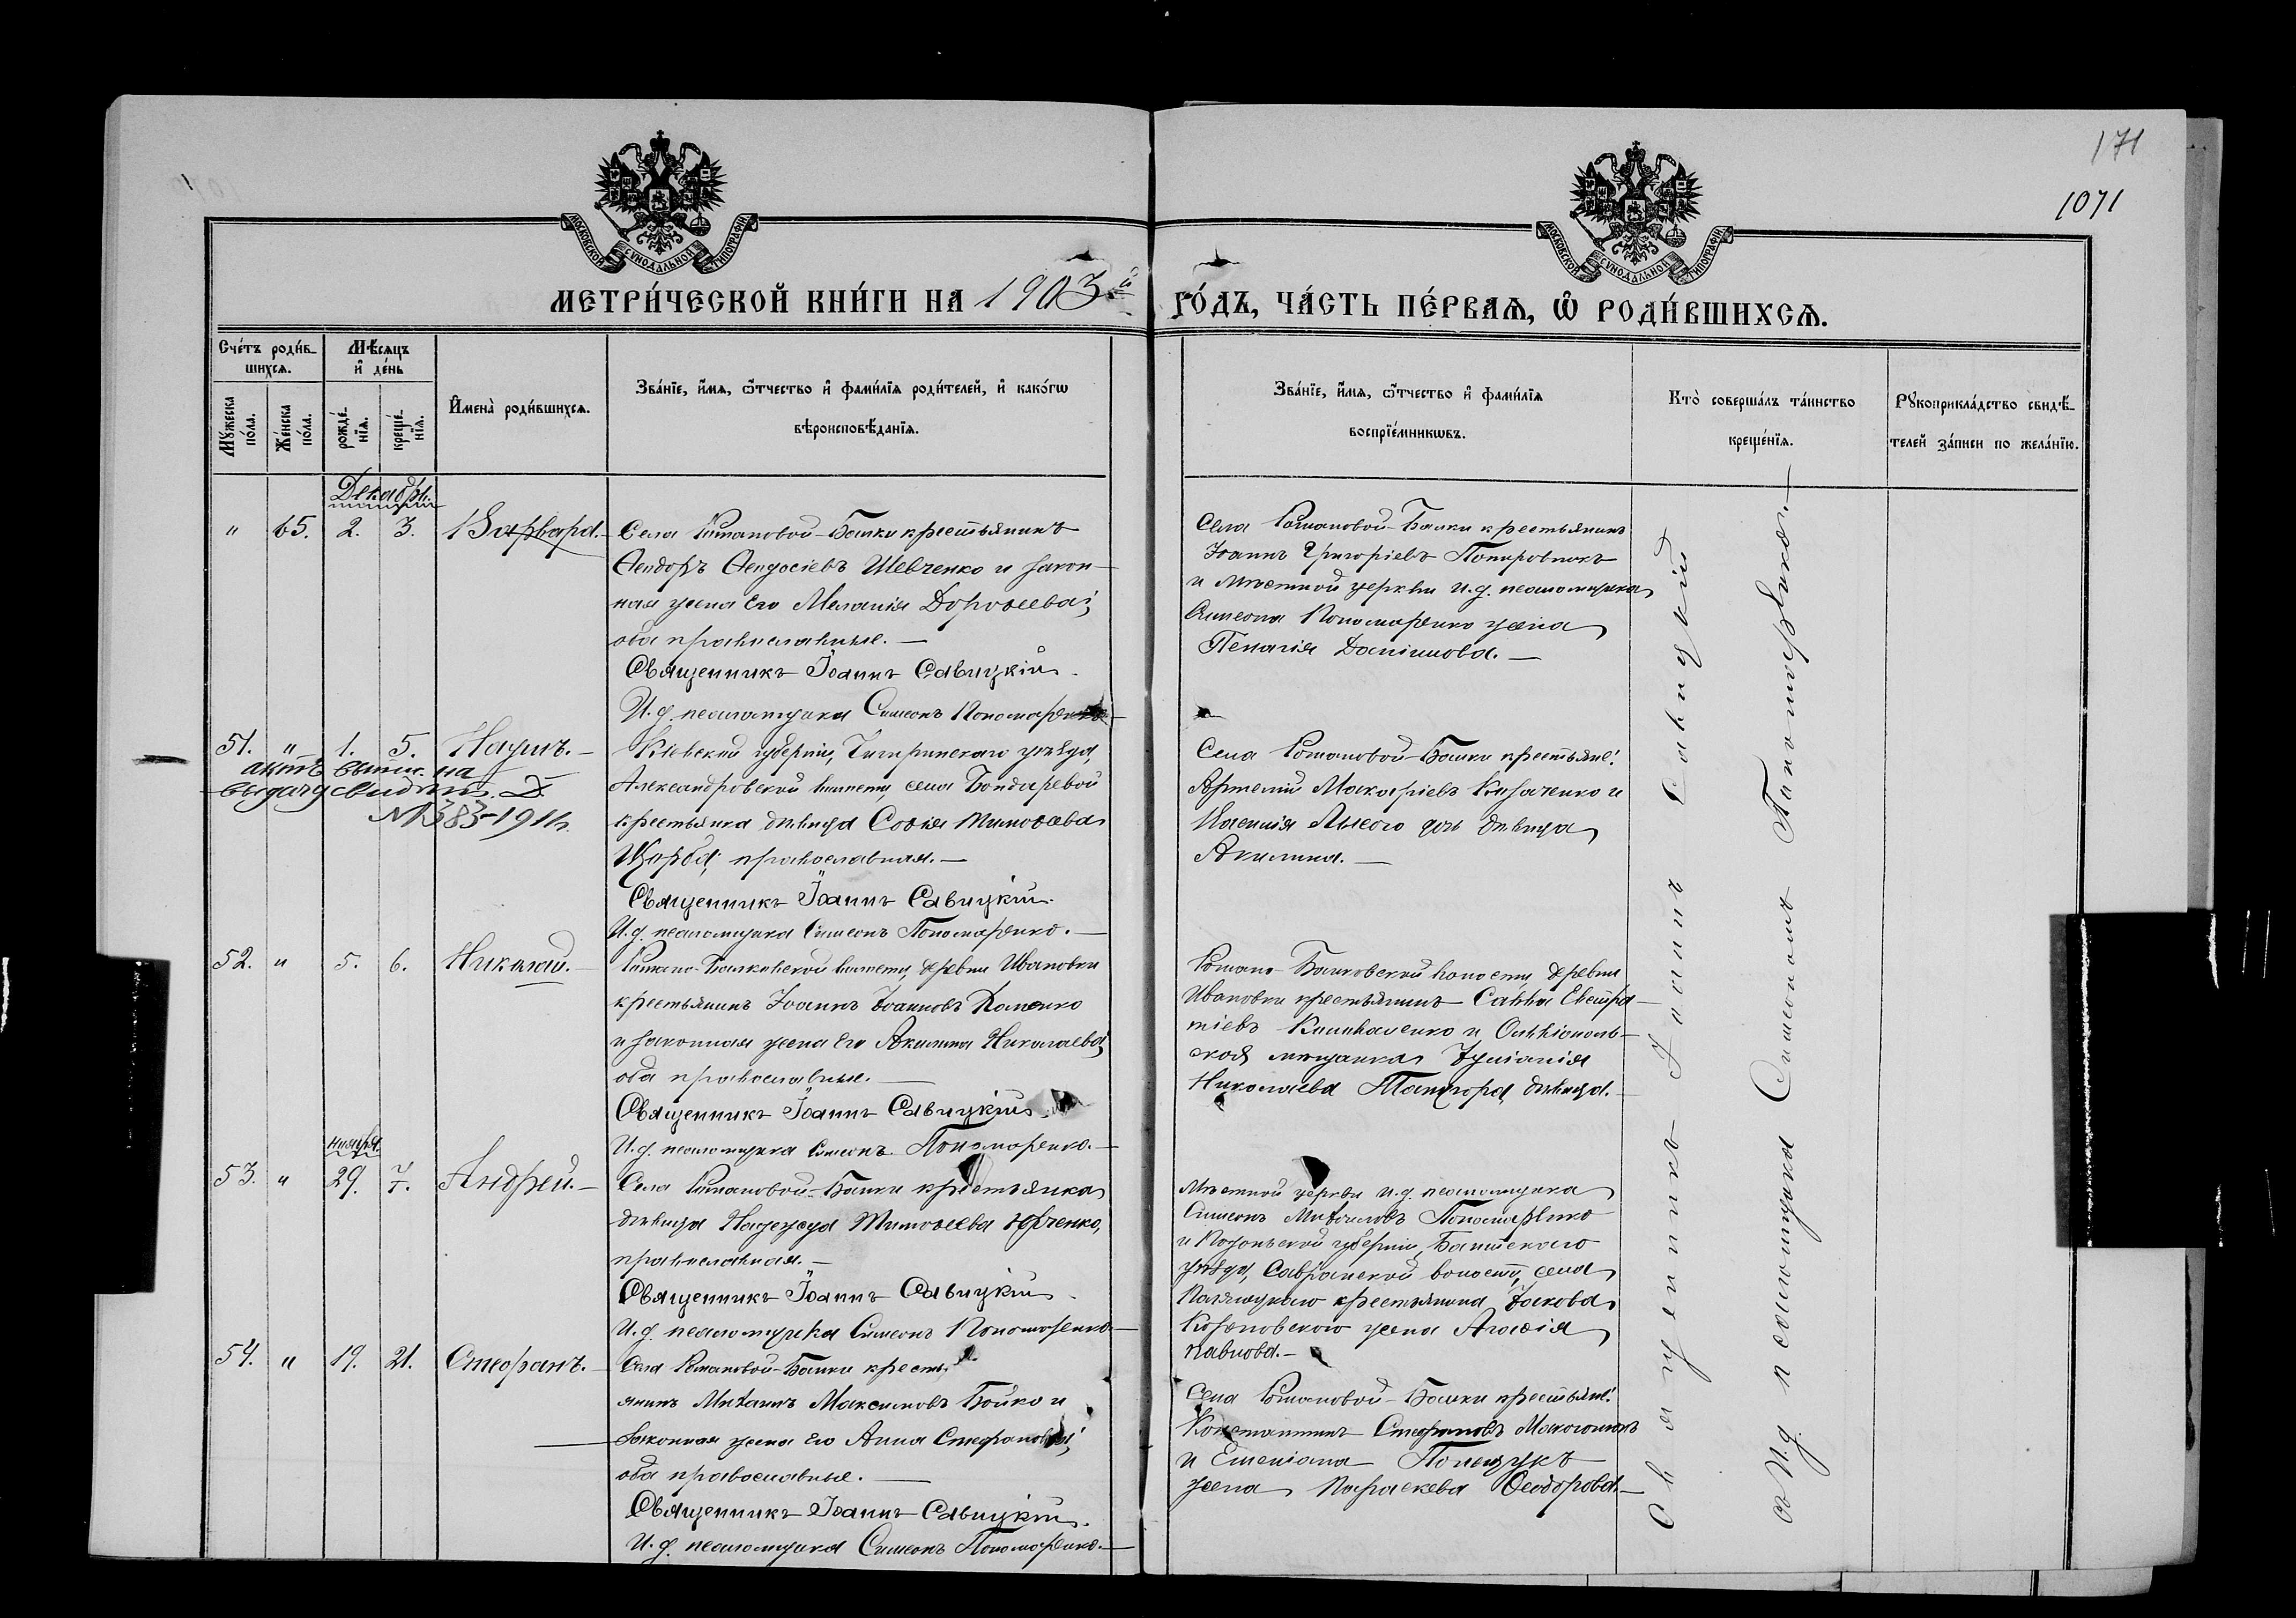 171
1071
МОСКОВСКОЙ СѴНОДАЛЬНОЙ ТИПОГРАФІИ
МОСКОВСКОЙ СѴНОДАЛЬНОЙ ТИПОГРАФІИ
МЕТРИ́ЧЕСКОЙ КНИ́ГИ НА 1903й
ГО́ДЪ, ЧА́СТЬ ПЕ́РВАѦ, Ѡ҆ РОДИ́ВШИХСѦ.
Сче́тъ роди́в-
шихсѧ.
Мꙋ́жеска по́ла.
Же́нска по́ла.
Мѣ́сѧцъ и҆ де́нь
рожде́-нїѧ.
креще́-нїѧ.
И҆мена̀ роди́вшихсѧ.
Зва́нїе, и҆́мѧ, ѻ҆́тчество и҆ фами́лїѧ роди́телей, и҆ како́гѡ
вѣроисповѣ́данїѧ.
Зва́нїе, и҆́мѧ, ѻ҆́тчество и҆ фами́лїѧ
воспрїе́мникѡвъ.
Кто̀ соверша́лъ та́инство
креще́нїѧ.
Рꙋкоприкла́дство свидѣ́-
телей за́писи по жела́нїю.
Декабрь.
" 65. 2. 3. Варвара.
Села Романовой-Балки крестьянинъ
Ѳеодоръ Ѳеодосіевъ Шевченко и закон-
ная жена его Меланія Дороѳеева;
оба православные.
Священникъ Іоаннъ Савицкій.
И. д. псаломщика Симеонъ Пономаренко
Села Романовой-Балки крестьянинъ
Іоаннъ Григоріевъ
и мѣстной церкви и. д. псаломщика
Симеона Пономаренко жена
Пелагія Даніилова.
51. " 1. 5. Наумъ.
актъ выпис. на
выдачу свидѣт.
№ 383-1911г.
Кіевской губерніи, Чигиринскаго уѣзда,
Александровской волости, села Бондаревой
крестьянка дѣвица Софія Тимоѳеева
Щерба; православная.
Священникъ Іоаннъ Савицкій.
И. д. псаломщика Симеонъ Пономаренко.
Села Романовой-Балки крестьяне:
Артемій Макаріевъ и
дочь дѣвица
Акилина.
52. " 5. 6. Николай.
Романо-Балковской волости, деревни Ивановки
крестьянинъ Іоаннъ Іоанновъ
и законная жена его Акилина Николаева;
оба православные.
Священникъ Іоаннъ Савицкій
И. д. псаломщика Симеонъ Пономаренко.
Романо-Балковской волости, деревни
Ивановки крестьянинъ Савва Евстра-
тіевъ и Ольвіополь-
ская мѣщанка Іуліанія
Николаева дѣвица.
ноября.
53. " 29. 7. Андрей.
Села Романовой-Балки крестьянка
дѣвица Надежда Тимоѳеева Юрченко,
православная.
Священникъ Іоаннъ Савицкій.
И. д. псаломщика Симеонъ Пономаренко.
Мѣстной церкви и. д. псаломщика
Симеонъ Михаиловъ Пономаренко
и Подольской губерніи, Балтскаго
уѣзда, Савранской волости, села
крестьянина Іакова
жена Агаѳія
Павлова.
54. " 19. 21. Стефанъ.
Села Романовой-Балки кресть-
янинъ Михаилъ Максимовъ Бойко и
законная жена его Анна Стефанова;
оба православные.
Священникъ Іоаннъ Савицкій.
И. д. псаломщика Симеонъ Пономаренко.
Села Романовой-Балки крестьяне:
Константинъ Стефановъ
и Емеліана Полещукъ
жена Параскева Ѳеодорова.
Священникъ Іоаннъ Савицкій
съ И. д. псаломщика Симеономъ Пономаренкомъ.